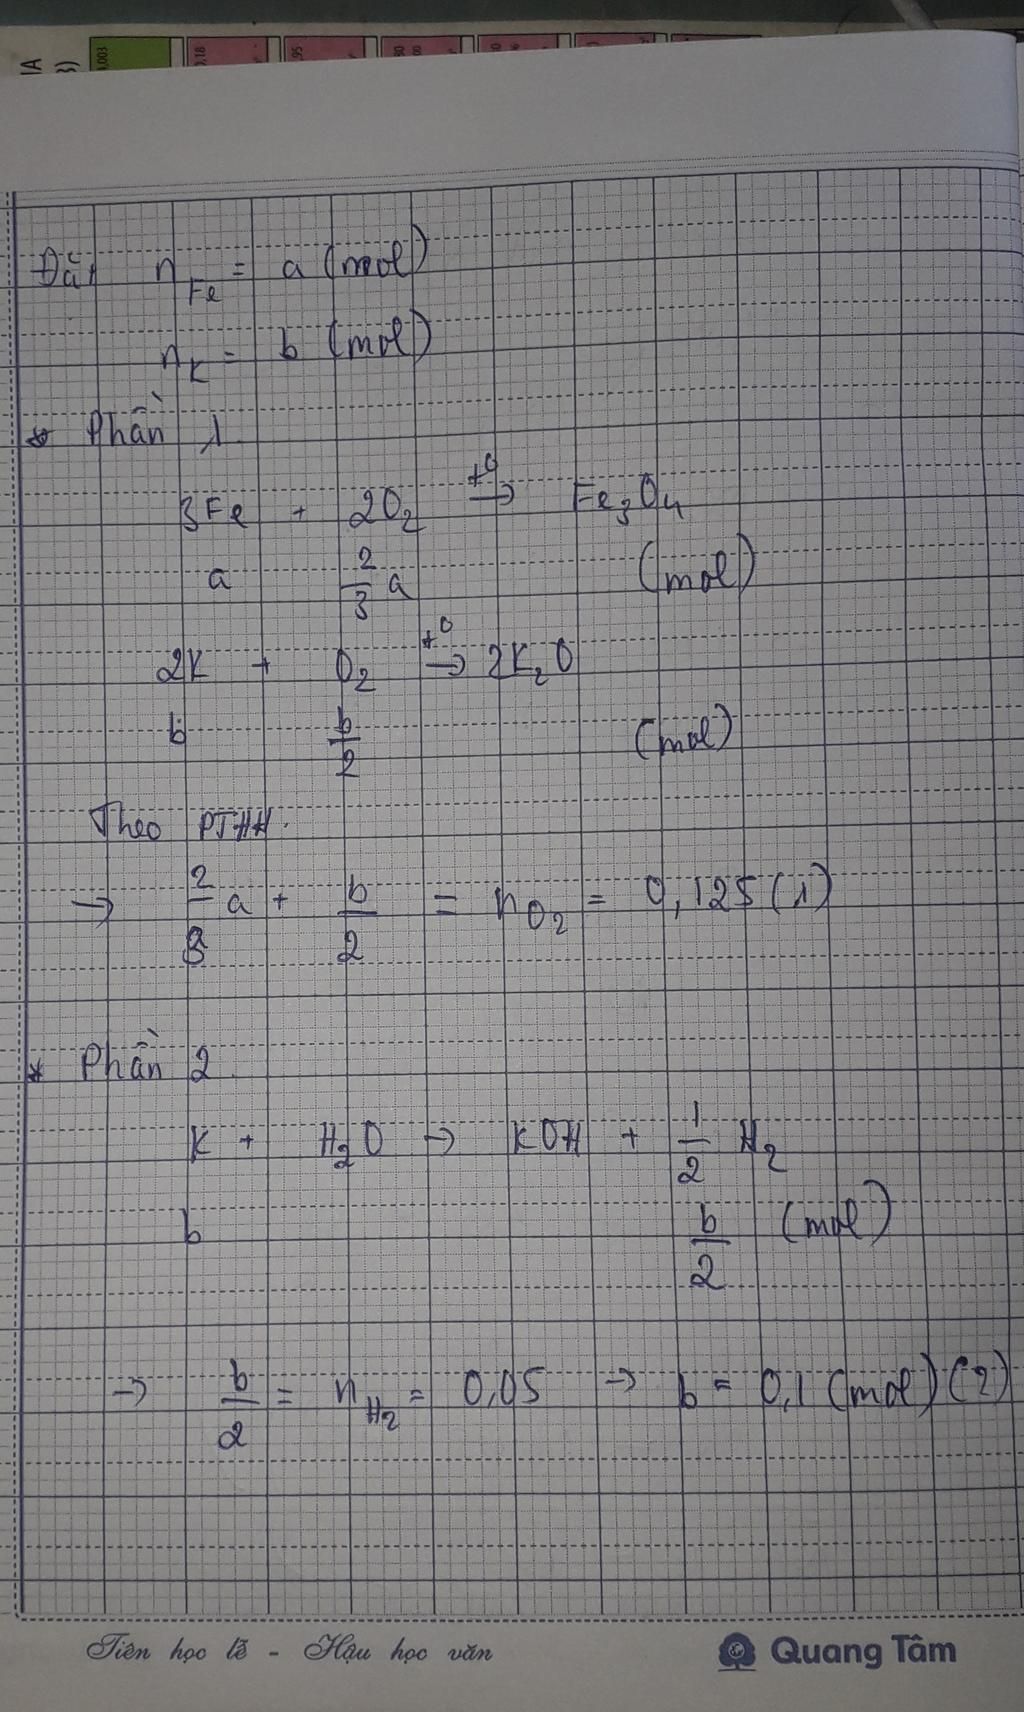 IA
3)
0,003
0,18
,95
30
00
Đặt n_Fe = a (mol)
n_K = b (mol)
* Phần 1
3Fe + 2O₂ t⁰→ Fe₃O₄
a 2/3 a (mol)
2K + O₂ t⁰→ 2K₂O
b b/2 (mol)
Theo PTHH.
→ 2/3 a + b/2 = n_O₂ = 0,125 (1)
* Phần 2.
K + H₂O → KOH + 1/2 H₂
b b/2 (mol)
→ b/2 = n_H₂ = 0,05 → b = 0,1 (mol) (2)
Tiên học lễ - Hậu học văn
Quang Tâm